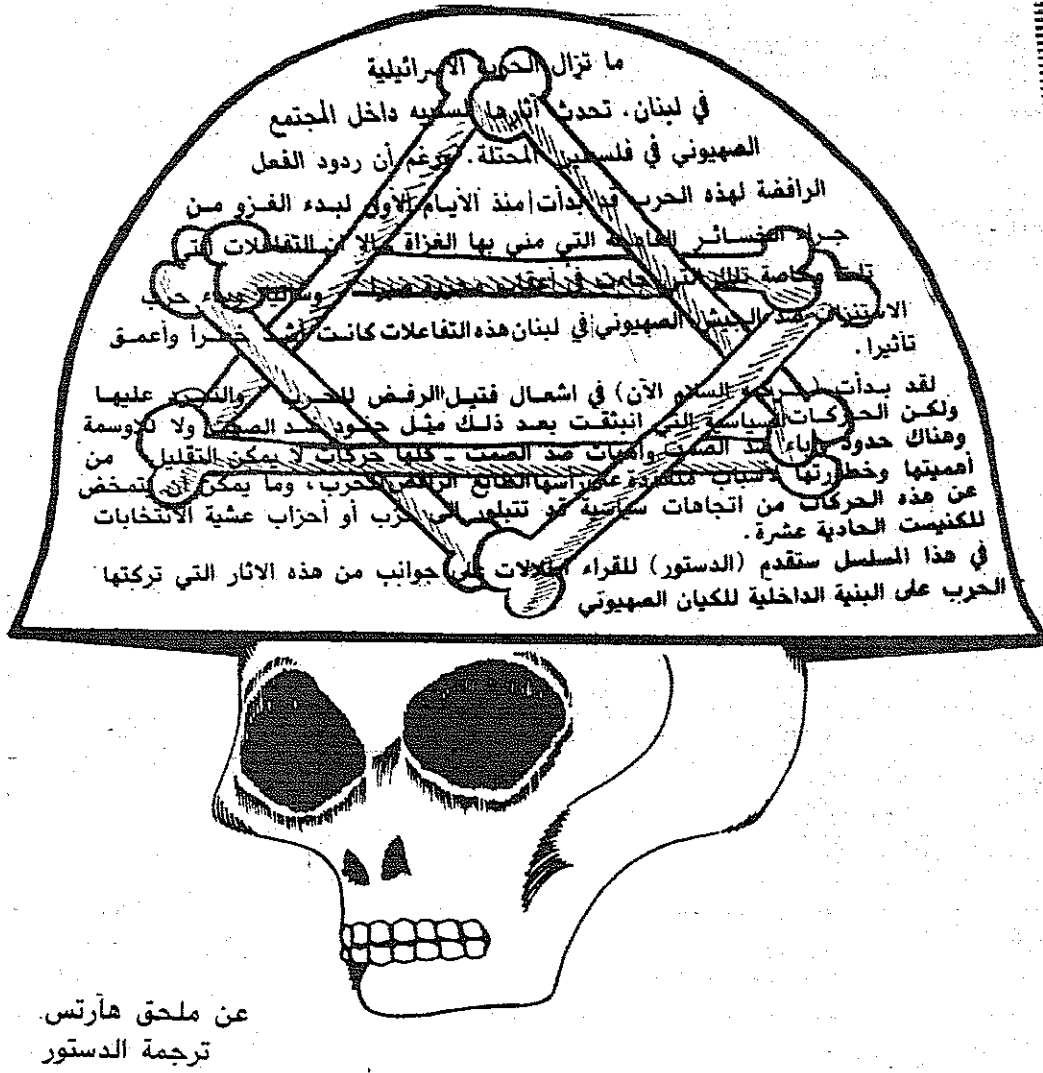 ما تزال الحرب الاسرائيلية
في لبنان. تحدث آثارها السلبية داخل المجتمع
الصهيوني في فلسطين المحتلة. ورغم أن ردود الفعل
الرافضة لهذه الحرب قد بدأت منذ الأيام الأولى لبدء الغزو من
جراء الخسائر التي مني بها الغزاة الا ان التفاعلات التي
تلت وخاصة تلك التي جاءت في أعقاب مجزرة صبرا وشاتيلا وبدء حرب
الاستنزاف ضد الجيش الصهيوني في لبنان هذه التفاعلات كانت أشد خطرا وأعمق
تأثيرا.
لقد بدأت (حركة السلام الآن) في اشعال فتيل الرفض للحرب والتمرد عليها
ولكن الحركات السياسية التي انبثقت بعد ذلك مثل جنود ضد الصمت ولا للاوسمة
وهناك حدود وآباء ضد الصمت وأمهات ضد الصمت - كلها حركات لا يمكن التقليل من
أهميتها وخطورتها لأسباب متعددة على رأسها الطابع الرافض للحرب، وما يمكن أن يتمخض
عن هذه الحركات من اتجاهات سياسية قد تتبلور الى حزب أو أحزاب عشية الانتخابات
للكنيست الحادية عشرة.
في هذا المسلسل ستقدم (الدستور) للقراء اطلالات على جوانب من هذه الاثار التي تركتها
الحرب على البنية الداخلية للكيان الصهيوني
عن ملحق هآرتس.
ترجمة الدستور